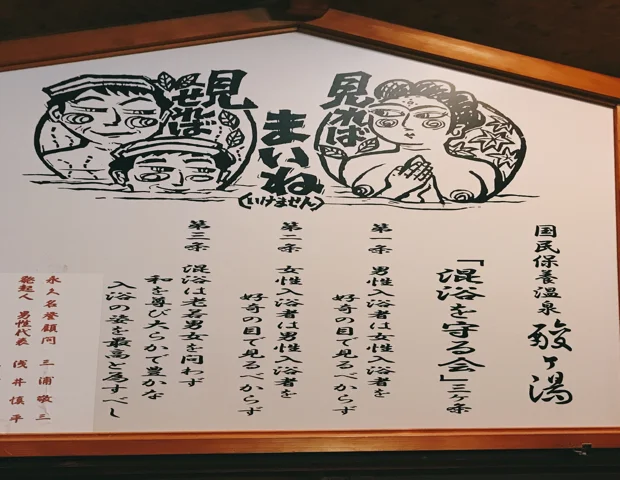 見れば
まいね
(いけません)
見せれば
国民保養温泉
酸ヶ湯
「混浴を守る会」三ヶ条
第一条 男性入浴者は女性入浴者を
好奇の目で見るべからず
第二条 女性入浴者は男性入浴者を
好奇の目で見るべからず
第三条 混浴は老若男女を問わず
和を尊び大らかで豊かな
入浴の姿を最高と為すべし
永久名誉顧問 三浦敬三
発起人 男性代表 浅井慎平